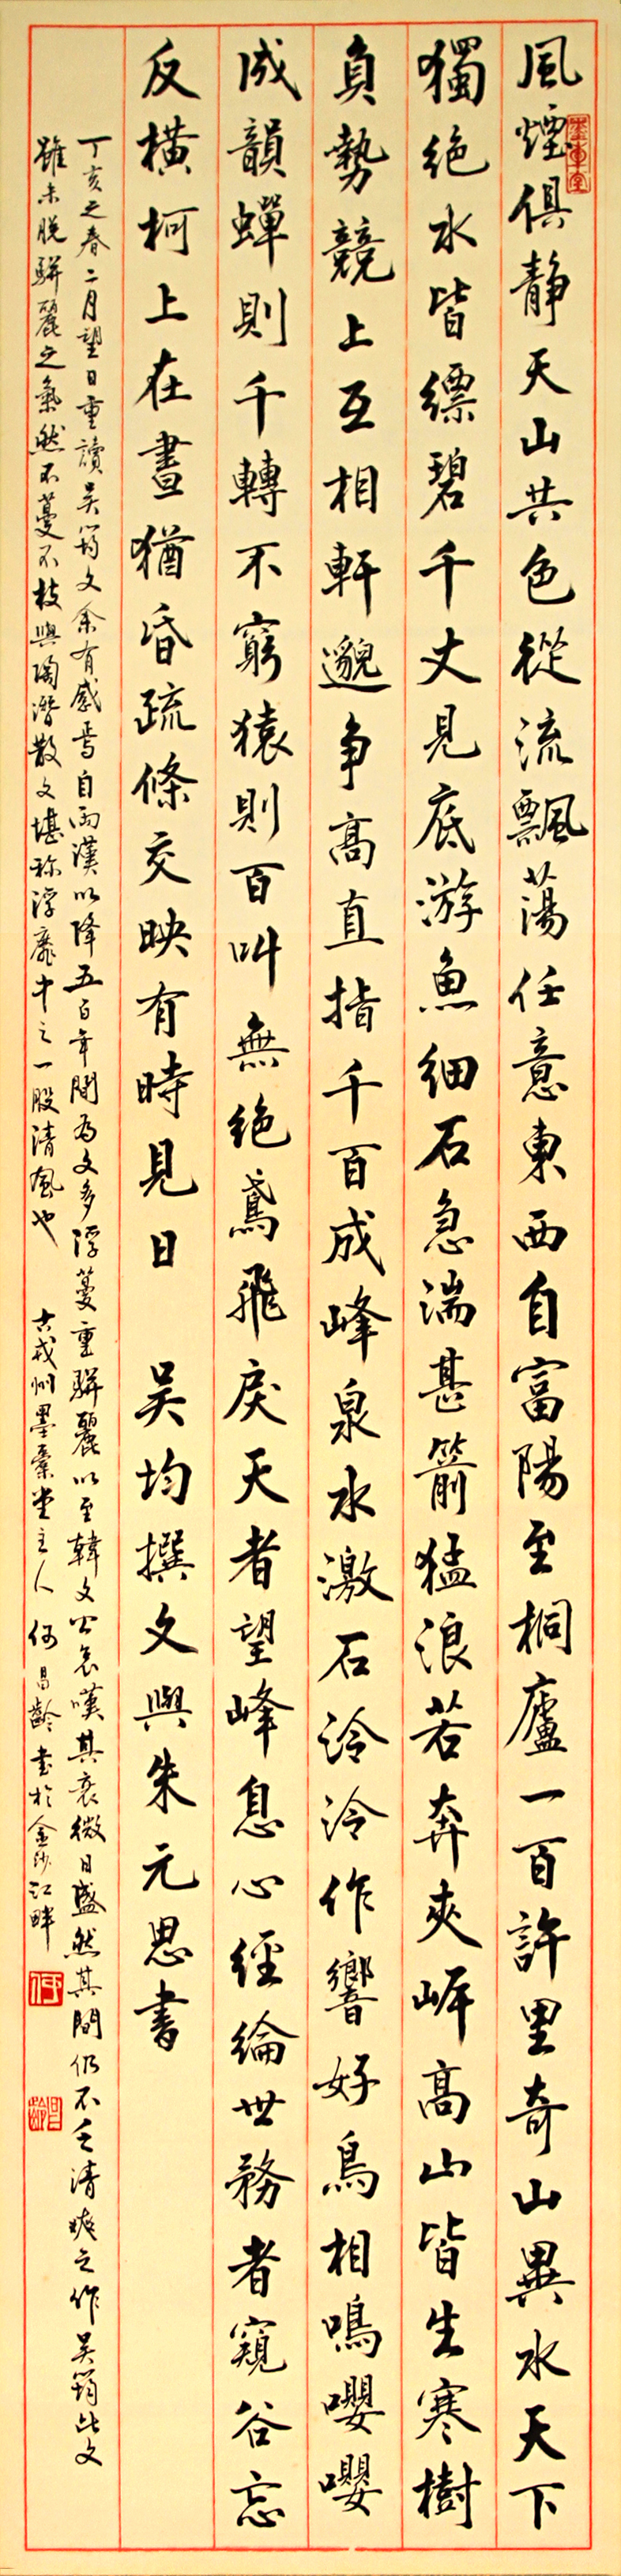 風煙俱静天山共色從流飄蕩任意東西自富陽至桐廬一百許里奇山異水天下
獨絶水皆縹碧千丈見底游魚細石急湍甚箭猛浪若奔夾岸高山皆生寒樹
負勢競上互相軒邈争高直指千百成峰泉水激石泠泠作響好鳥相鳴嚶嚶
成韻蟬則千轉不窮猿則百叫無絶鳶飛戾天者望峰息心經綸世務者窺谷忘
反横柯上在晝猶昏疏條交映有時見日 吴均撰文與朱元思書
丁亥之春二月望日重讀吴筠文余有感焉自兩漢以降五百年間为文多浮蔓重駢麗以至韓文公哀嘆其衰微日盛然其間仍不乏清爽之作吴筠此文
雖未脱駢麗之氣然不蔓不枝與陶潛散文堪称浮靡中之一股清風也 古戎州墨稾堂主人何昌齡書於金沙江畔
何
昌齡